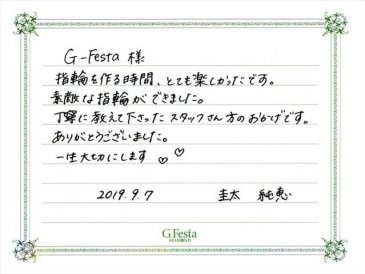 G-Festa 様
指輪を作る時間、とても楽しかったです。
素敵な指輪ができました。
丁寧に教えて下さったスタッフさん方のおかげです。
ありがとうございました。
一生大切にします ♡♡
2019.9.7 圭太 純恵
G.Festa
DIAMOND